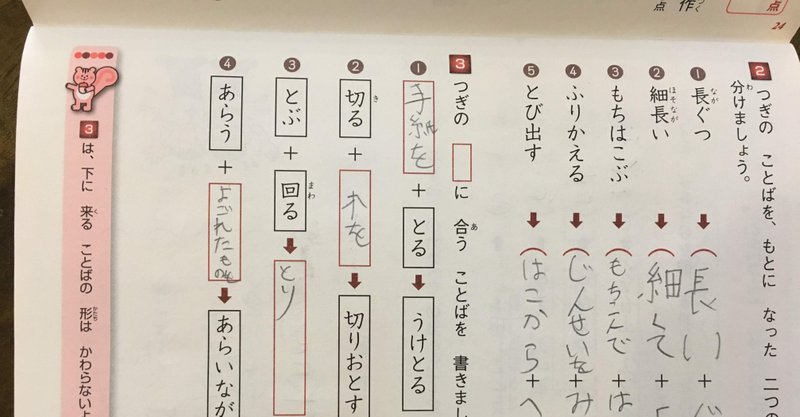 点
作 点
24
2 つぎの ことばを、もとに なった 二つの
分けましょう。
❶ 長ぐつ ➡ (長い +
❷ 細長い ➡ (細くて +
❸ もちはこぶ ➡ (もちこんで + は
❹ ふりかえる ➡ (じんせいを + み
❺ とび出す ➡ (はこから + へ
3 つぎの に 合う ことばを 書きまし
❶ 手紙を + とる ➡ うけとる
❷ 切る + 木を ➡ 切りおとす
❸ とぶ + 回る ➡ とり
❹ あらう + よごれたものを ➡ あらいなが
3 は、下に 来る ことばの 形は かわらないよ